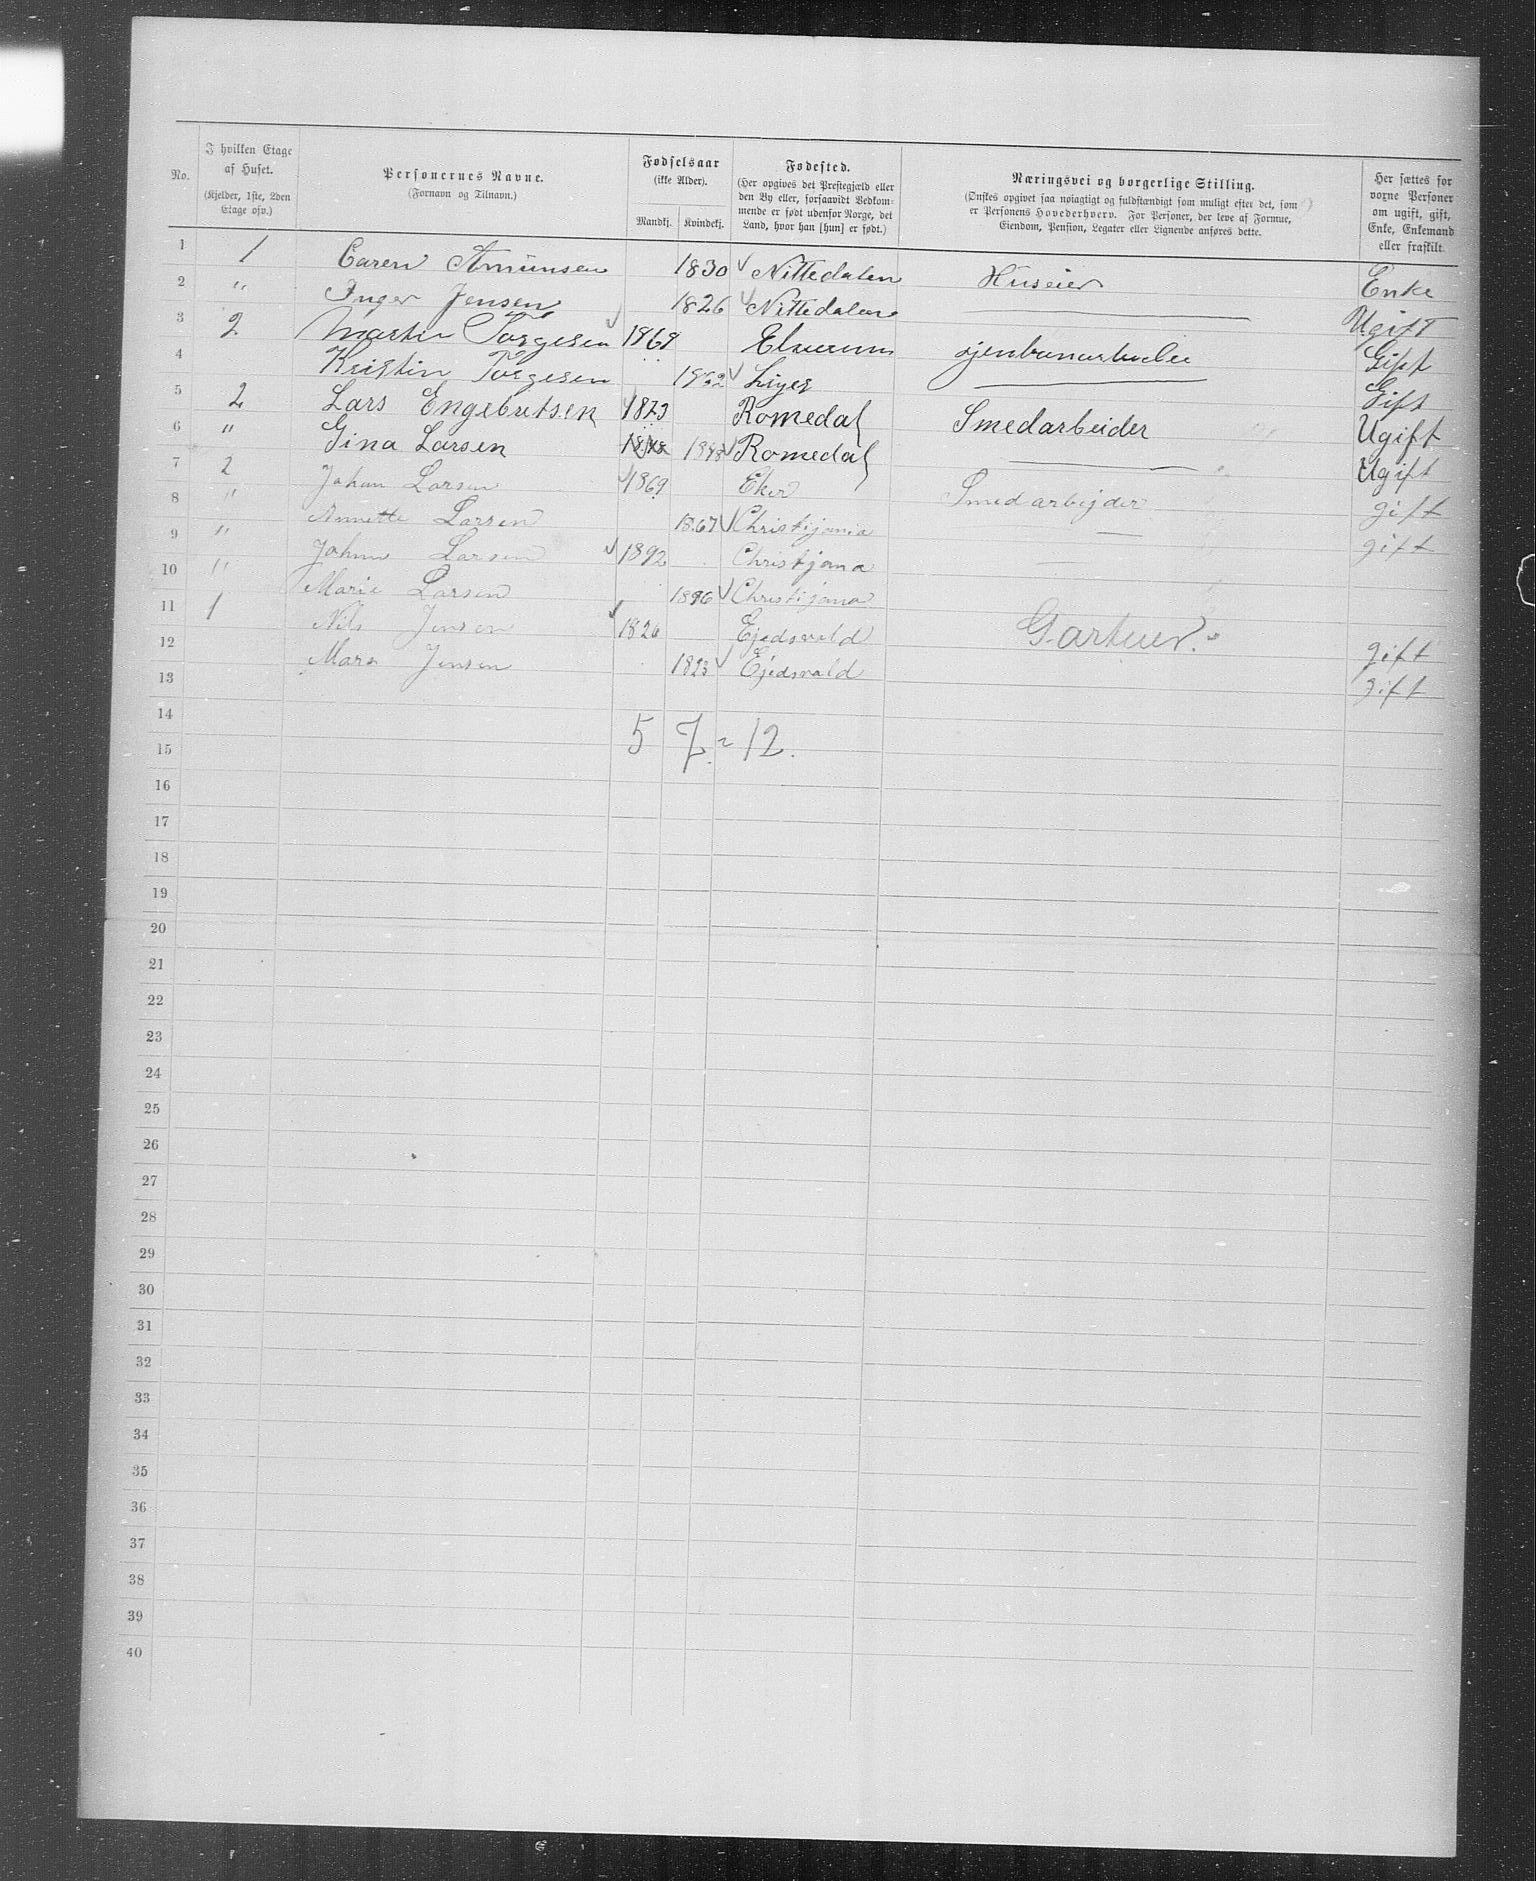 No.
I hvilken Etage
af Huset.
(Kjelder, 1ste, 2den
Etage osv.)
Personernes Navne.
(Fornavn og Tilnavn.)
Fødselsaar
(ikke Alder).
Mandkj. Kvindekj.
Fødested.
(Her opgives det Prestegjæld eller
den By eller, forsaavidt Vedkom-
mende er født udenfor Norge, det
Land, hvor han [hun] er født.)
Næringsvei og borgerlige Stilling.
(Ønskes opgivet saa nøiagtigt og fuldstændigt som muligt efter det, som
er Personens Hovederhverv. For Personer, der leve af Formue,
Eiendom, Pension, Legater eller Lignende anføres dette.
Her sættes for
voxne Personer
om ugift, gift,
Enke, Enkemand
eller fraskilt.
1 1 Caren Amunsen 1830 Nittedalen Huseier Enke
2 " Inger Jensen 1826 Nittedalen — Ugift
3 2 Martin Torgesen 1869 Elverum Gift
4 Kristin Torgesen Gift
5 2 Lars Engebretsen 1873 Romedal Smedarbeider Ugift
6 " Gina Larsen Romedal — Ugift
7 2 Johan Larsen 1869 Eker Smedarbejder gift
8 " Annette Larsen 1867 Christijania — gift
9 " Johan Larsen 1892 Christjana —
10 " Marie Larsen 1896 Christijana
11 1 Nils Jensen 1826 Ejedsvold Gartner. gift
12 Mari Jensen 1823 Ejedsvald gift
13
14
15 5 7 = 12.
16
17
18
19
20
21
22
23
24
25
26
27
28
29
30
31
32
33
34
35
36
37
38
39
40